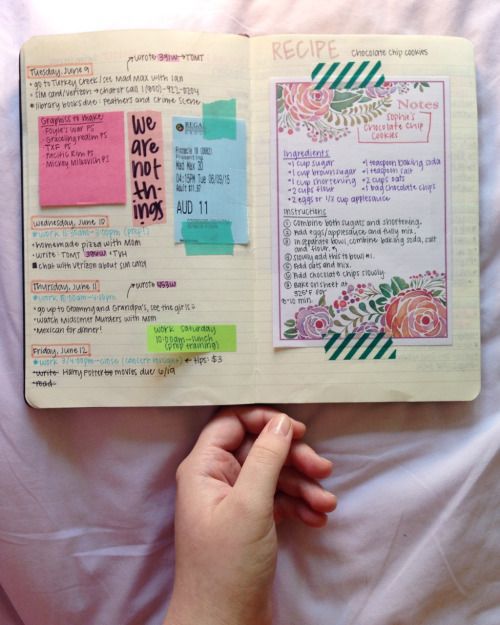 wrote 391w → TDMT
Tuesday, June 9
• go to Turkey Creek / see Mad Max with Ian
• library books due: Feathers and Crime Scene
Graphics to make:
Foyle's War PS
TXF PS
Pacific Rim PS
Mickey Milkovich PS
we are not th-ings
REGAL
Presenting
Mad Max 3D
04:15PM Tue 06/09/15
AUD 11
Wednesday, June 10
• homemade pizza with Mom
• chat with Verizon about sim card
→ wrote
Thursday, June 11
• go up to Grammy and Grandpa's, see the girls
• watch Midsomer Murders with Mom
• Mexican for dinner!
work Saturday
10:00am–lunch
(prep training)
Friday, June 12
← tips: $3
Harry Potter movies due 6/19
read
RECIPE Chocolate Chip Cookies
Notes
Sophie's
Chocolate Chip
Cookies
Ingredients
•1 cup sugar
•1 cup brown sugar
•1 cup shortening
•2 cups flour
•2 eggs or 1/2 cup applesauce
•1 teaspoon baking soda
•1 teaspoon salt
•2 cups oats
•1 bag chocolate chips
Instructions
① Combine both sugars and shortening.
② Add eggs/applesauce and fully mix.
③ In separate bowl, combine baking soda, salt
and flour.
④ Slowly add this to bowl #1.
⑤ Add oats and mix.
⑥ Add chocolate chips slowly.
⑦ Bake on sheet at
325°F for
8-10 min.